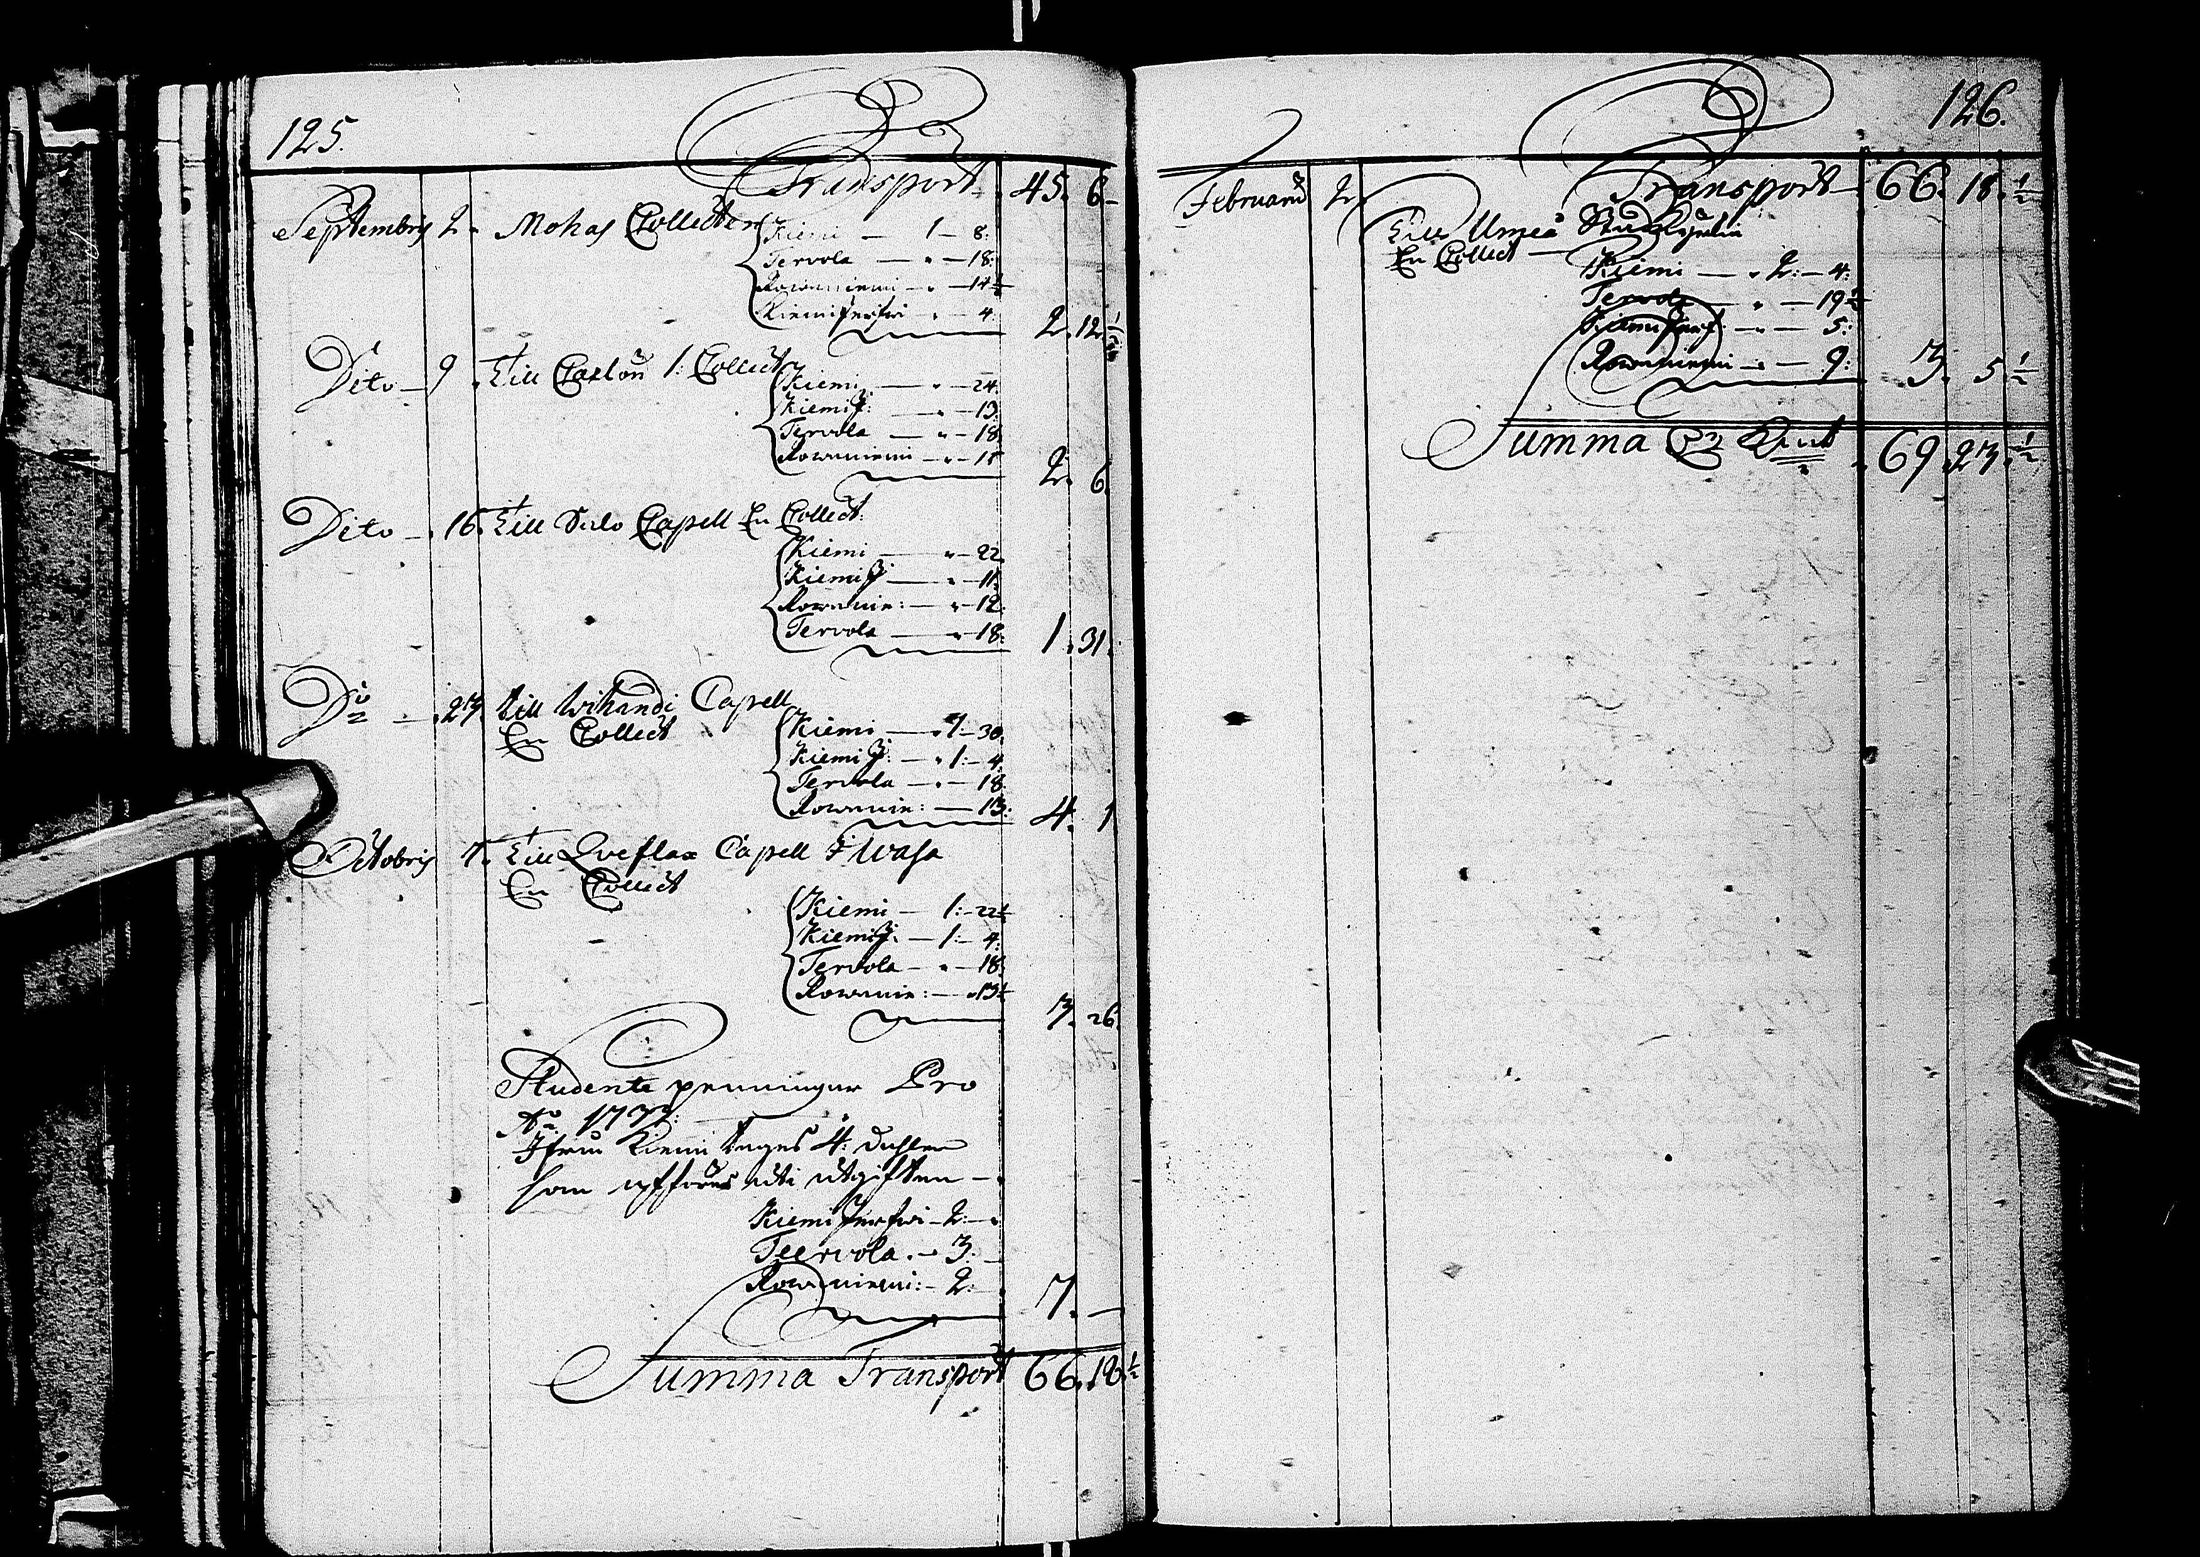 125.
Transport 45. 6.
Septembris 2. Mohas Collecten
Kiemi — 1 — 8:
Tervola — " — 18:
Rowaniemi — " — 14 ½
Kiemi Jerfwi — " — 4:
2. 12. ½
Dito — 9. Till Carlöu 1: Collect
Kiemi — " — 24.
Kiemi J: — " — 13.
Tervola — " — 18
Rowaniemi — " — 15
2. 6.
Dito — 16. Till Salo Capell En Collect:
Kiemi — " — 22.
Kiemi J — " — 11.
Rowanie: — " — 12:
Tervola — " — 18:
1. 31.
Do — 23. till wihandi Capell
En Collect
Kiemi — " 1: — 30.
Kiemi J: — " 1: — 4.
Tervola — " — 18
Rowanie: — 13.
4. 1
Octobris 7. Till Qveflax Capell i Wasa
En Collect
Kiemi — 1: — 22 ½
Kiemi J: — 1: — 4:
Tervola — " — 18.
Rowanie: — " 13 ½
3. 26.
Studente penningar Pro
Ao 1737:
Ifrån Kiemi tages 4: dahler
som upföres uti utgiften —
Kiemi Jerfwi — 2: — "
Teervola. — 3: —
Rowaniemi: — 2: —
7. —
Summa Transport 66. 18. ½
126.
Transport — 66. 18. ½
Februarii 2. Till Umeå Stads
En Collect —
Kiemi — " 2: — 4:
Tervola — " — 19 ½
Kiemi Jerf: — " — 5:
Rowaniemi — " — 9:
3. 5 ½
Summa 69. 23. ½